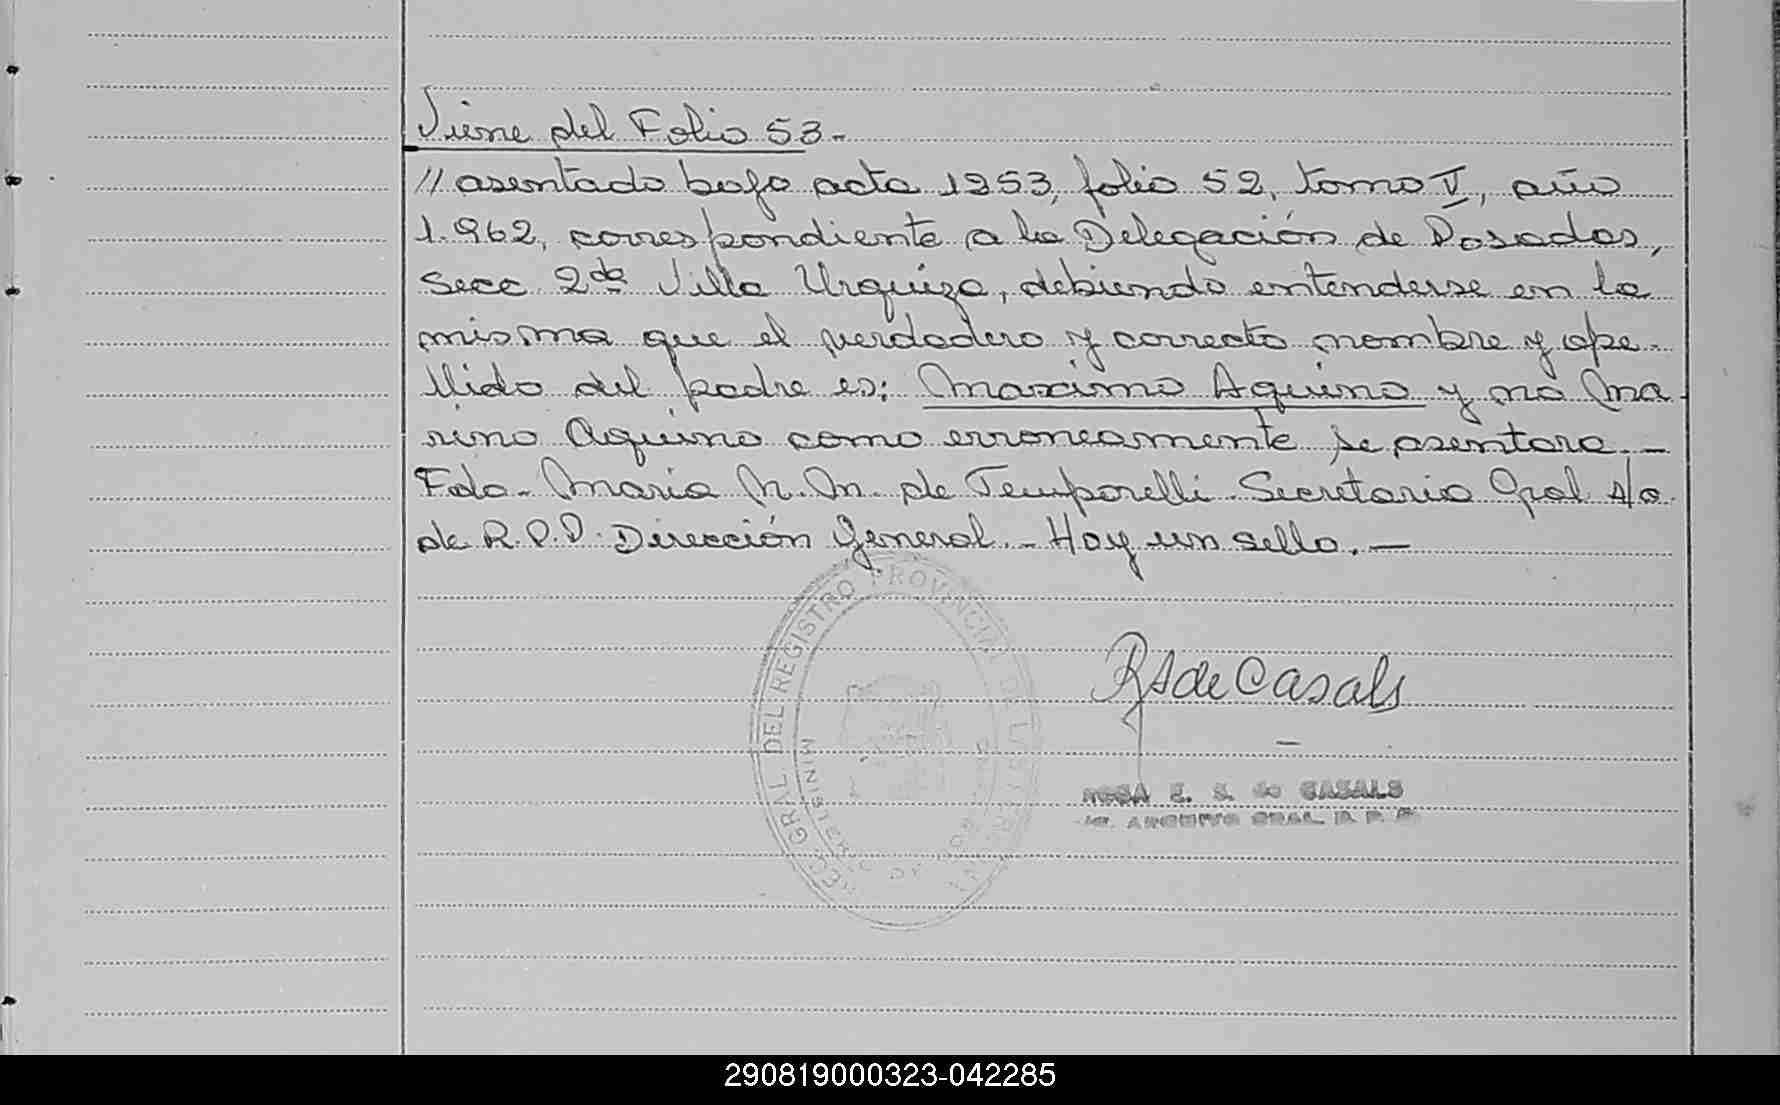 Viene del Folio 53-
// asentado bajo acta 1253, folio 52, tomo V, año
1.962, correspondiente a la Delegación de Posadas,
Secc 2da Villa Urquiza, debiendo entenderse en la
misma que el verdadero y correcto nombre y ape-
llido del padre es: Maximo Aquino y no Ma-
rino Aquino como erroneamente se asentara.-
Fdo- Maria M. M. de Temporelli. Secretaria Gral A/c
de R.P.P. Dirección General.- Hay un sello.-
GRAL DEL REGISTRO PROVINCIAL DE LAS
MINISTERIO
RS de Casals
ROSA E. S. de CASALS
ARCHIVO GRAL. R. P. P.
290819000323-042285